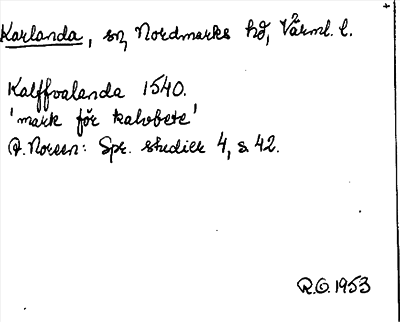 Karlanda, sn, Nordmarks hd, Värml. l.
Kalffvalanda 1540.
'mark för kalvbete'
A. Noreen: Spr. studier 4, s. 42.
R.O. 1953